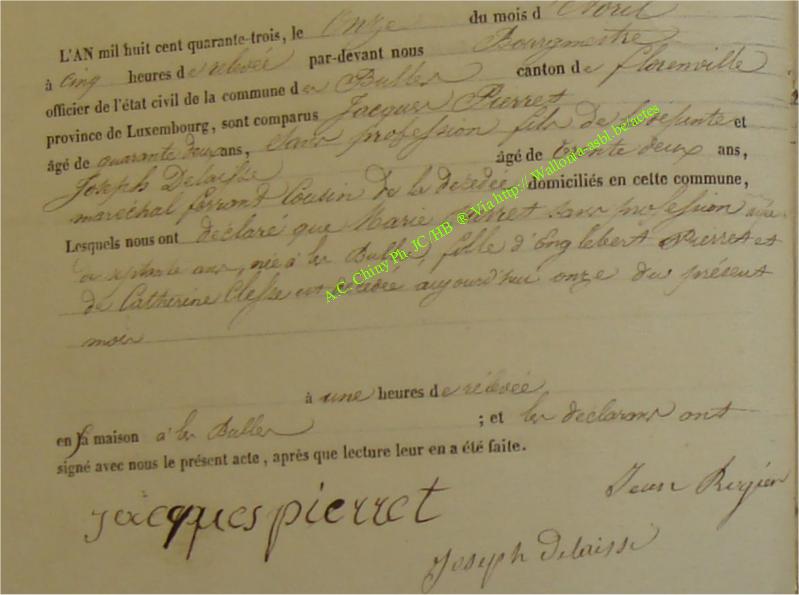 L'AN mil huit cent quarante-trois, le Onze du mois d'Avril
à cinq heures de relevée par-devant nous Bourgmestre
officier de l'état civil de la commune des Bulles canton de florenville
province de Luxembourg, sont comparus Jacques Pierret
âgé de quarante deux ans, sans profession fils de la défunte et
Joseph Delaisse âgé de trente deux ans,
maréchal ferrant Cousin de la domiciliés en cette commune,
Lesquels nous ont déclaré que Marie Pierret sans profession
ans, née à les Bulles, fille d'Englebert Pierret et
de Catherine Clesse est aujourd'hui onze du présent
mois
à une heures de relevée
en sa maison à les Bulles ; et les déclarans ont
signé avec nous le présent acte, après que lecture leur en a été faite.
jacques pierret
Jean
Joseph Delaisse
A.C. Chiny Ph. JC/HB @ Via http://Wallonia-asbl.be/actes